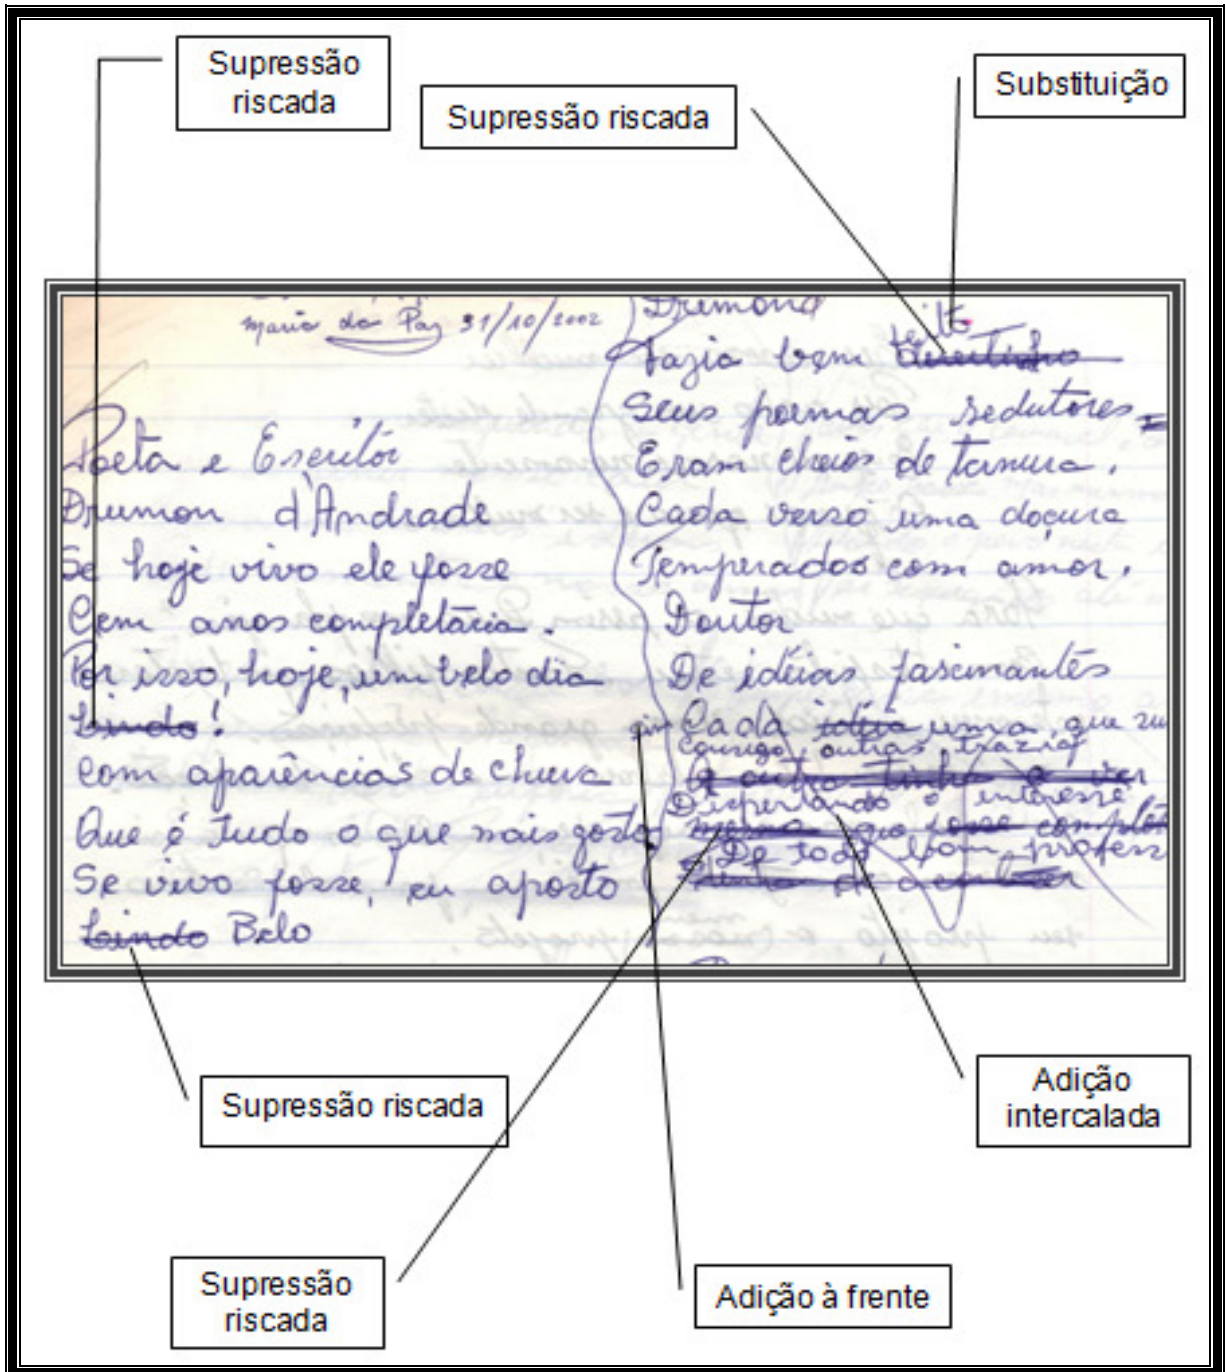 Supressão
riscada
Supressão riscada
Substituição
Maria da Paz 31/10/2002
Poeta e Escritor
Drumon d'Andrade
Se hoje vivo ele fosse
Cem anos completaria.
Por isso, hoje, um belo dia
Lindo!
Com aparências de chuva
Que é tudo o que mais gosto
Se vivo fosse, eu aposto
Lindo Belo
Drumond
feito
Fazia bem direitinho
Seus poemas sedutores
Eram cheios de ternura.
Cada verso uma doçura
Temperados com amor.
Doutor
De idéias fascinantes
Cada idéia uma, que
consigo, outras, trazia
A outra tinha a ver
Dispertando o interesse
mesma que fosse
De todo bom
Supressão riscada
Adição
intercalada
Supressão
riscada
Adição à frente